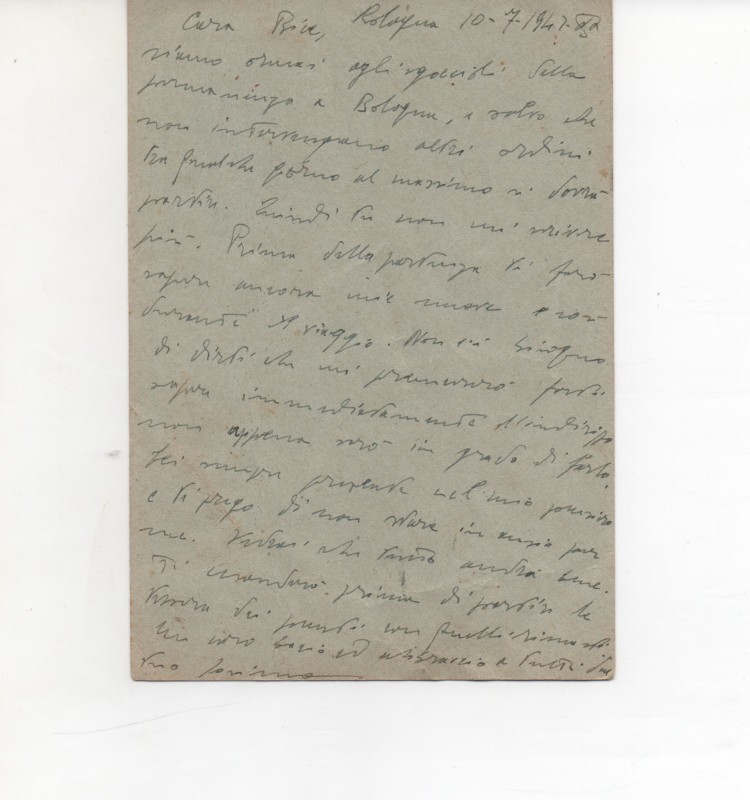 Cara Bice, Bologna 10-7-194
siamo ormai agli sgoccioli della
permanenza a Bologna, e salvo che
non intervengano altri ordini
tra qualche giorno al massimo si dovrà
partire. Quindi tu non mi scrivere
più. Prima della partenza ti farò
sapere ancora mie nuove e così
durante il viaggio. Non c'è bisogno
di dirti che mi premurerò farti
sapere immediatamente l'indirizzo
non appena sarò in grado di farlo.
Sei sempre presente nel mio pensiero
e ti prego di non stare in ansia per
me. Vedrai che tutto andrà bene.
Ti manderò prima di partire la
tessera dei punti con quelli rimasti
Un caro bacio ed abbraccio a tutti dal
tuo